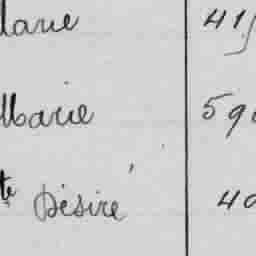 Marie 41
Marie 59
te Désiré 40